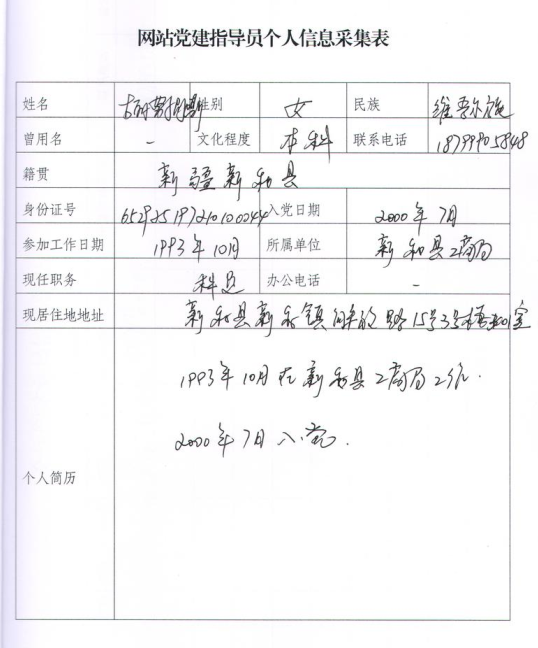 网站党建指导员个人信息采集表
姓名 性别 女 民族 维吾尔族
曾用名 - 文化程度 本科 联系电话
籍贯 新疆新和县
身份证号 入党日期 2000年7月
参加工作日期 1993年10月 所属单位 新和县工商局
现任职务 科员 办公电话 -
现居住地地址 新和县新和镇解放路15号3号楼
个人简历
1993年10月在新和县工商局工作.
2000年7月入党.